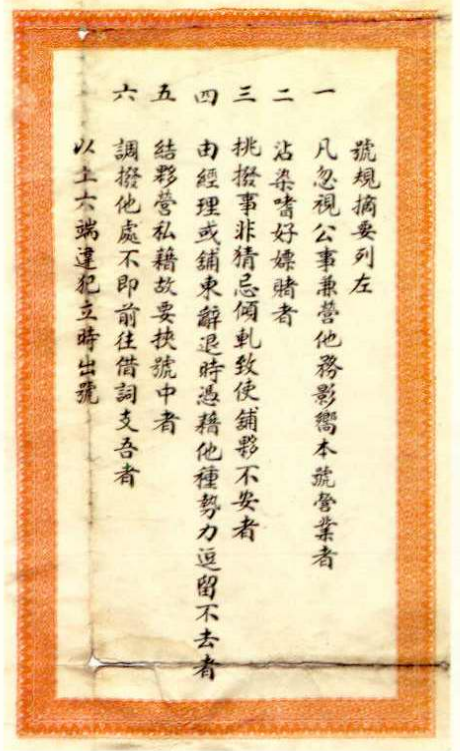 號規摘要列左
一 凡忽視公事兼營他務影嚮本號營業者
二 沾染嗜好嫖賭者
三 挑撥事非猜忌傾軋致使舖夥不安者
四 由經理或舖東辭退時憑藉他種勢力逗留不去者
五 結夥營私藉故要挾號中者
六 調撥他處不即前往借詞支吾者
以上六端違犯立時出號